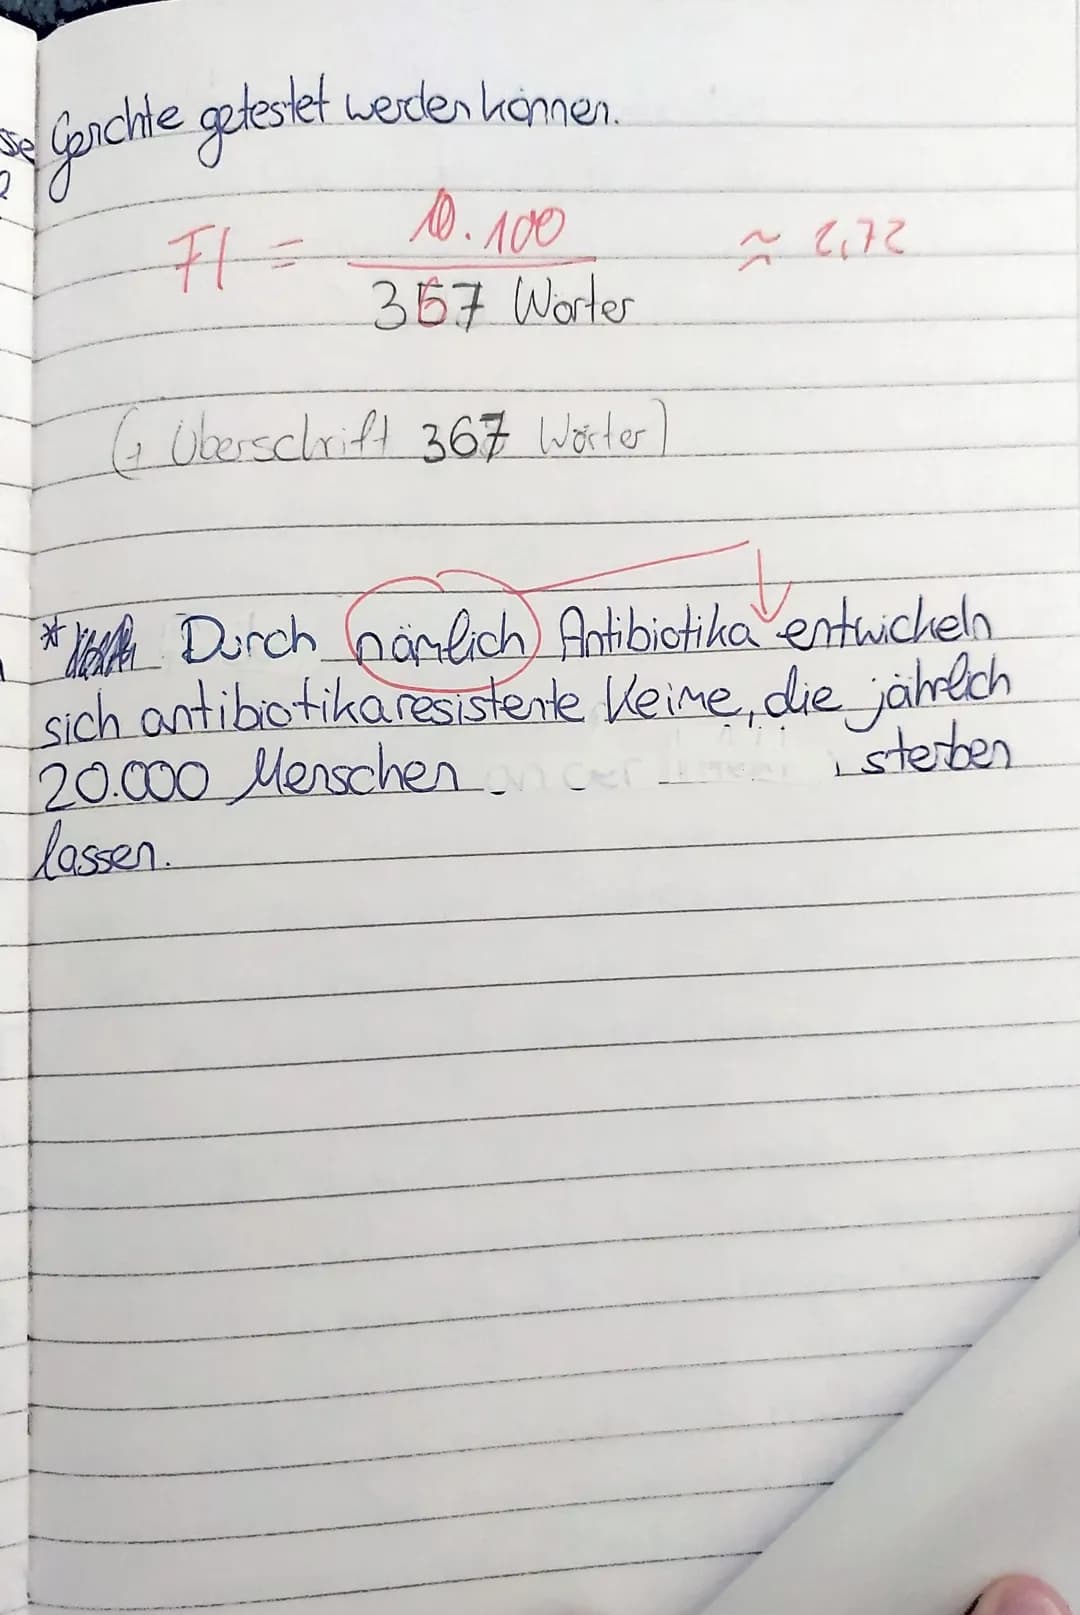 Gerichte getestet werden können.
FI = 10·100 / 367 Wörter ≈ 2,72
(+ Überschrift 367 Wörter)
* Durch nämlich Antibiotika entwickeln
sich antibiotikaresistente Keime, die jährlich
20.000 Menschen sterben
lassen.